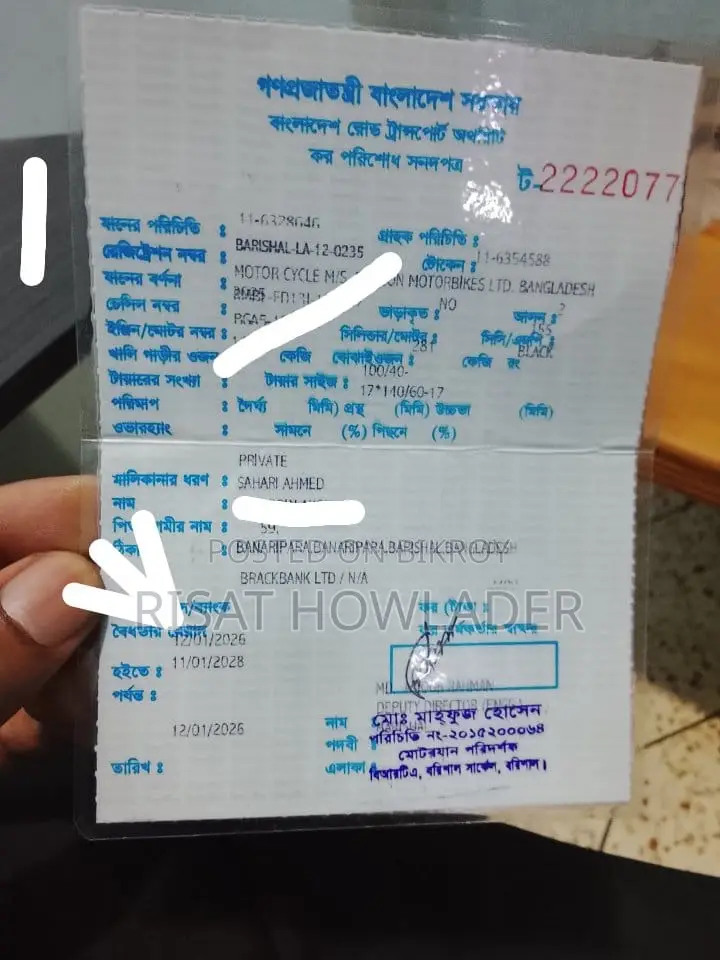 গণপ্রজাতন্ত্রী বাংলাদেশ সরকার
বাংলাদেশ রোড ট্রান্সপোর্ট অথরিটি
কর পরিশোধ সনদপত্র
ট-2222077
যানের পরিচিতি : 11-6328646 গ্রাহক পরিচিতি :
রেজিস্ট্রেশন নম্বর : BARISHAL-LA-12-0235 টোকেন : 11-6354588
যানের বর্ণনা : MOTOR CYCLE M/S. MOTORBIKES LTD. BANGLADESH
চেসিস নম্বর : 2025 ভাড়াকৃত : NO আসন : 2
ইঞ্জিন/মোটর নম্বর : সিলিন্ডার/মোটর : সিসি/ 155
খালি গাড়ীর ওজন : কেজি বোঝাইওজন : 281 কেজি রং BLACK
টায়ারের সংখ্যা : টায়ার সাইজ : 100/40-
17*140/60-17
পরিমাপ : দৈর্ঘ্য (মিমি) প্রস্থ (মিমি) উচ্চতা (মিমি)
ওভারহ্যাং : সামনে (%) পিছনে (%)
PRIVATE
মালিকানার ধরণ : SAHARI AHMED
নাম :
নাম : 59,
BANARIPARA,BANARIPARA,BARISHAL,BANGLADESH
POSTED ON BIKROY
BRACKBANK LTD / N/A
RISAT HOWLADER
কর (টাকা) :
বৈধতার মেয়াদ
12/01/2026
হইতে : 11/01/2028
পর্যন্ত :
RAHMAN
DEPUTY DIRECTOR (ENGG.)
12/01/2026
নাম মোঃ মাহফুজ হোসেন
পদবী : পরিচিতি নং-২০১৫২০০০৬৪
মোটরযান পরিদর্শক
তারিখ : এলাকা : বিআরটিএ, বরিশাল সার্কেল, বরিশাল।